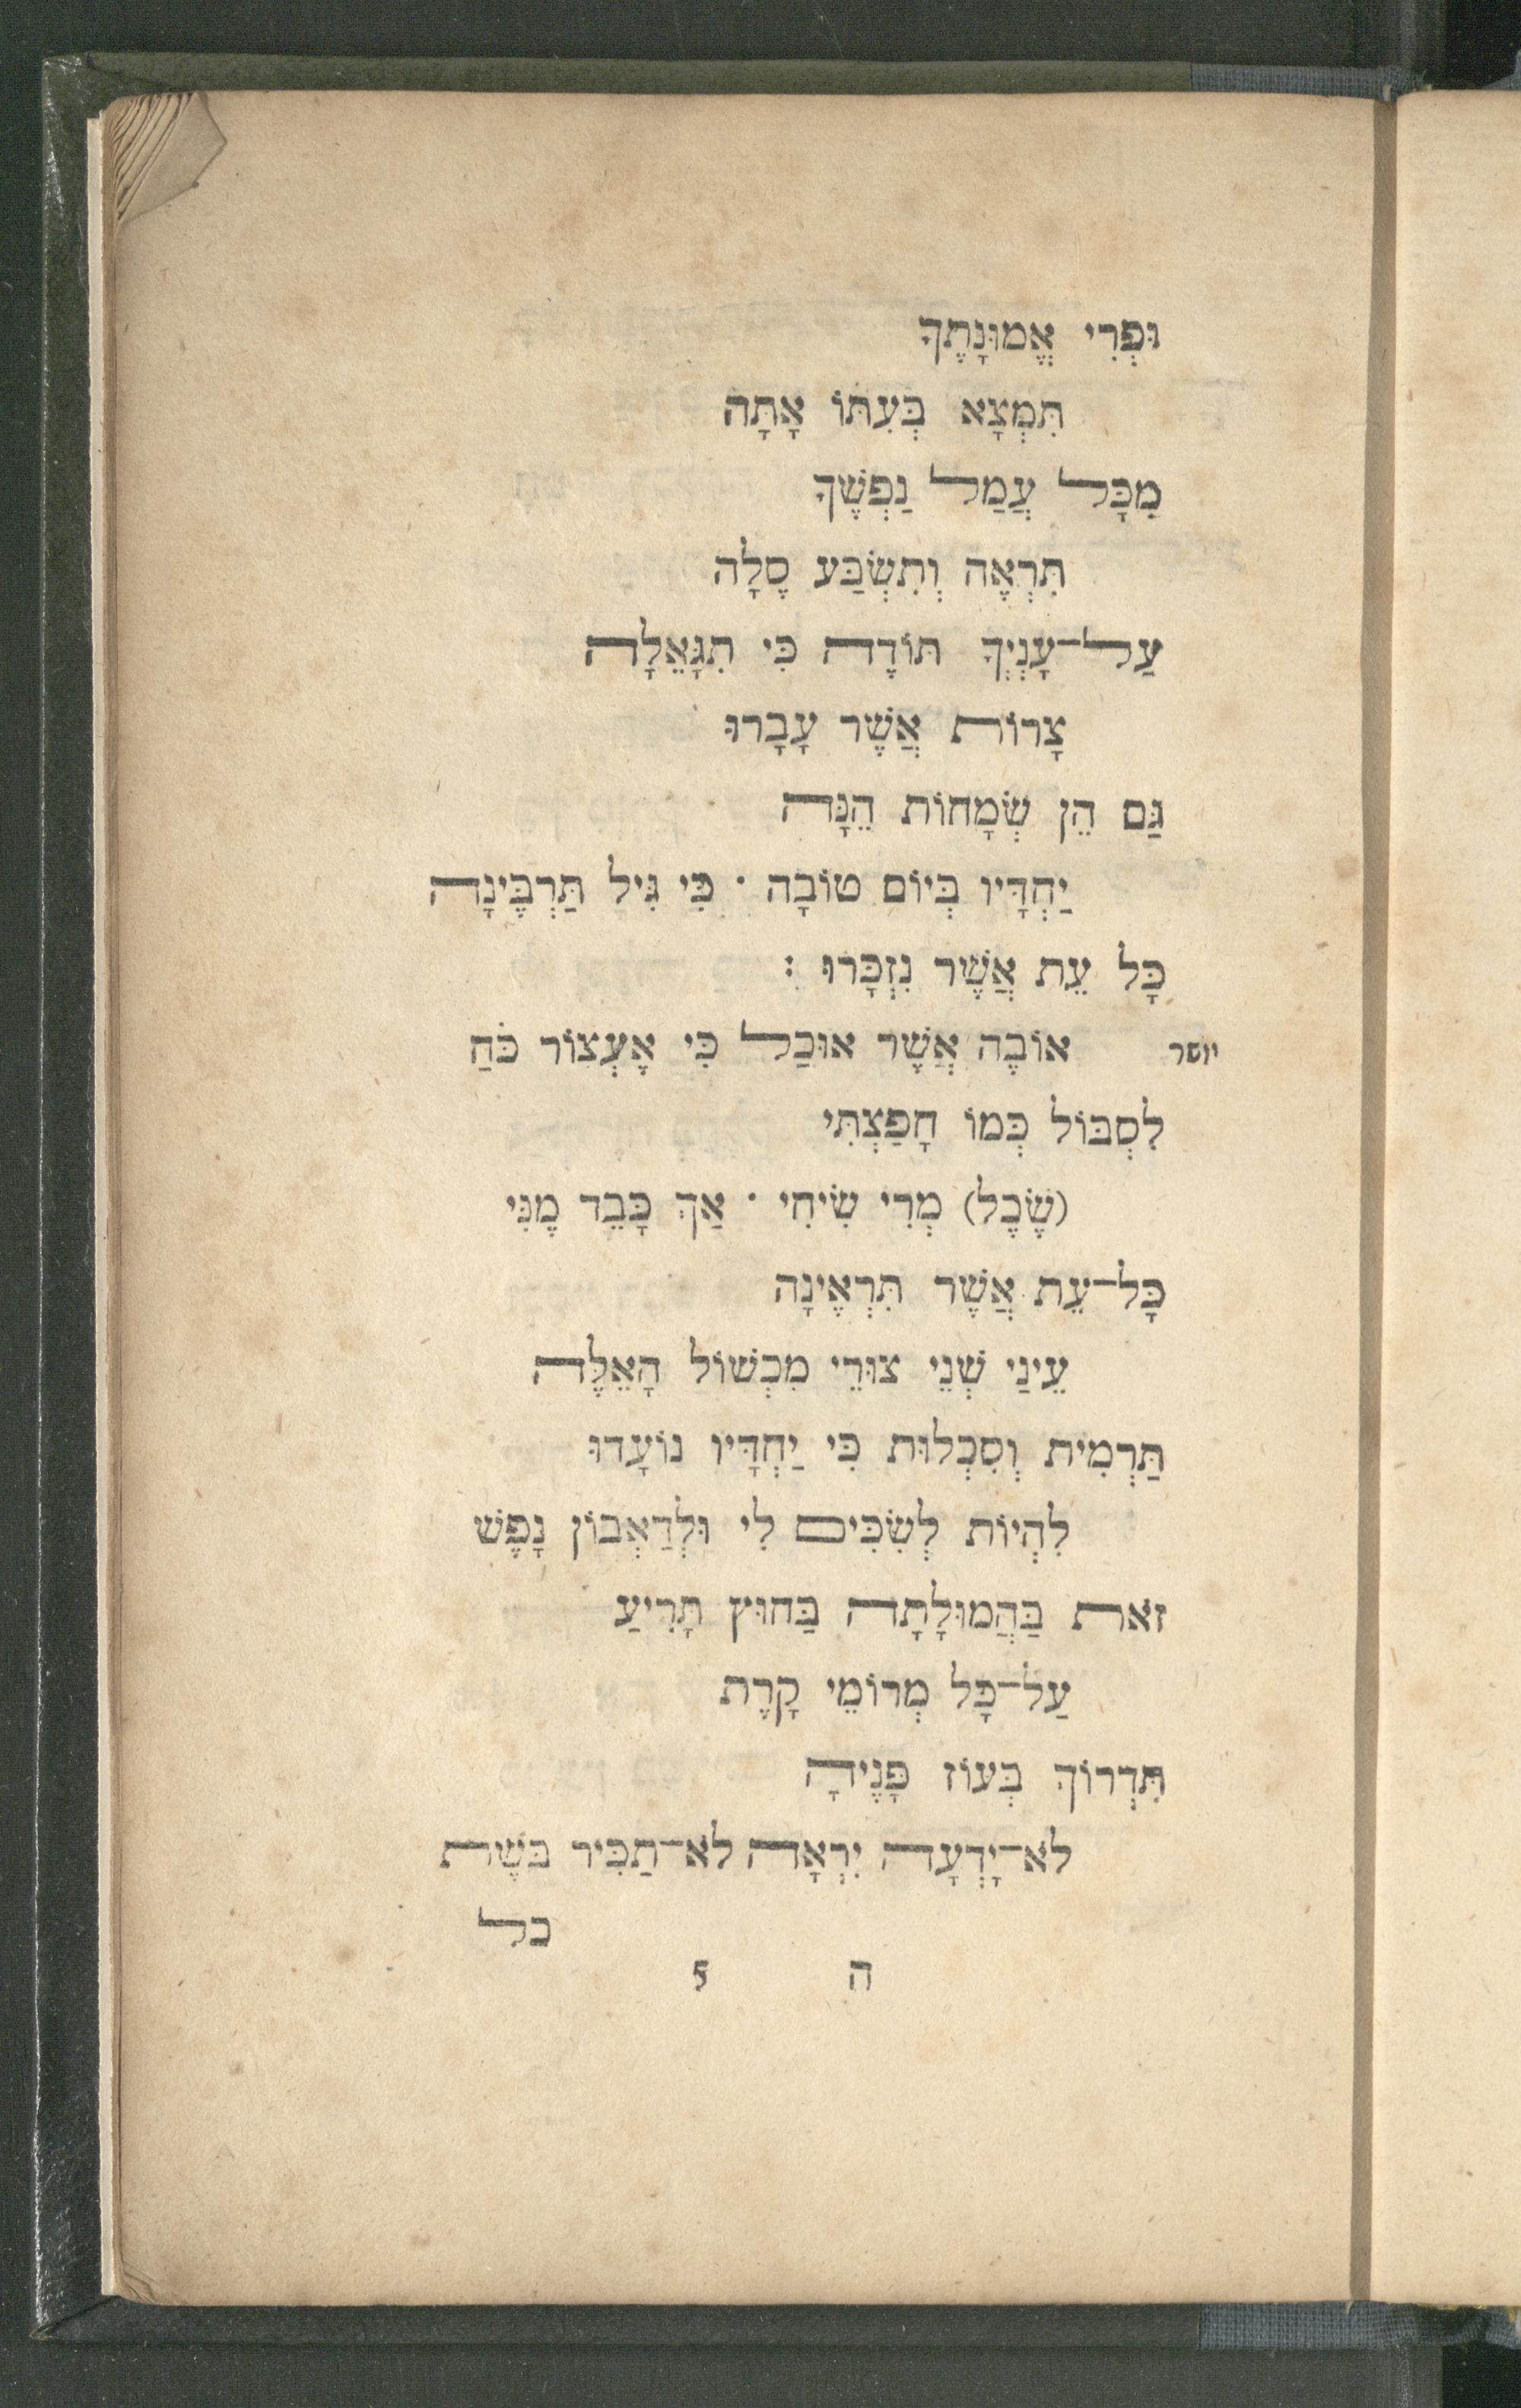 וּפְרִי אֱמוּנָתֶךָ
תִּמְצָא בְּעִתּוֹ אָתָּה
מִכָּל עֲמַל נַפְשֶׁךָ
תִּרְאֶה וְתִשְׂבַּע סֶלָה
עַל־עָנְיְךָ תּוֹדֶה כִּי תִגָּאֵלָה
צָרוֹת אֲשֶׁר עָבָרוּ
גַּם הֵן שְׂמָחוֹת הֵנָּה
יַחְדָּיו בְּיוֹם טוֹבָה · כִּי גִּיל תַּרְבֶּינָה
כָּל עֵת אֲשֶׁר נִזְכָּרוּ :
יושר אוֹבֶה אֲשֶׁר אוּכַל כִּי אֶעְצוֹר כֹּחַ
לִסְבּוֹל כְּמוֹ חָפַצְתִּי
(שֶׂכֶל) מְרִי שִׂיחִי · אַךְ כָּבֵד מֶנִּי
כָּל־עֵת אֲשֶׁר תִּרְאֶינָה
עֵינַי שְׁנֵי צוּרֵי מִכְשׁוֹל הָאֵלֶּה
תַּרְמִית וְסִכְלוּת כִּי יַחְדָּיו נוֹעָדוּ
לִהְיוֹת לְשִׂכִּים לִי וּלְדַאְבוֹן נָפֶשׁ
זֹאת בַּהֲמוּלָתָהּ בַּחוּץ תָּרִיעַ
עַל־כָּל מְרוֹמֵי קָרֶת
תִּדְרוֹךְ בְּעוֹז פָּנֶיהָ
לֹא־יָדְעָה יִרְאָה לֹא־תַכִּיר בּשֶׁת
כל
ה 5